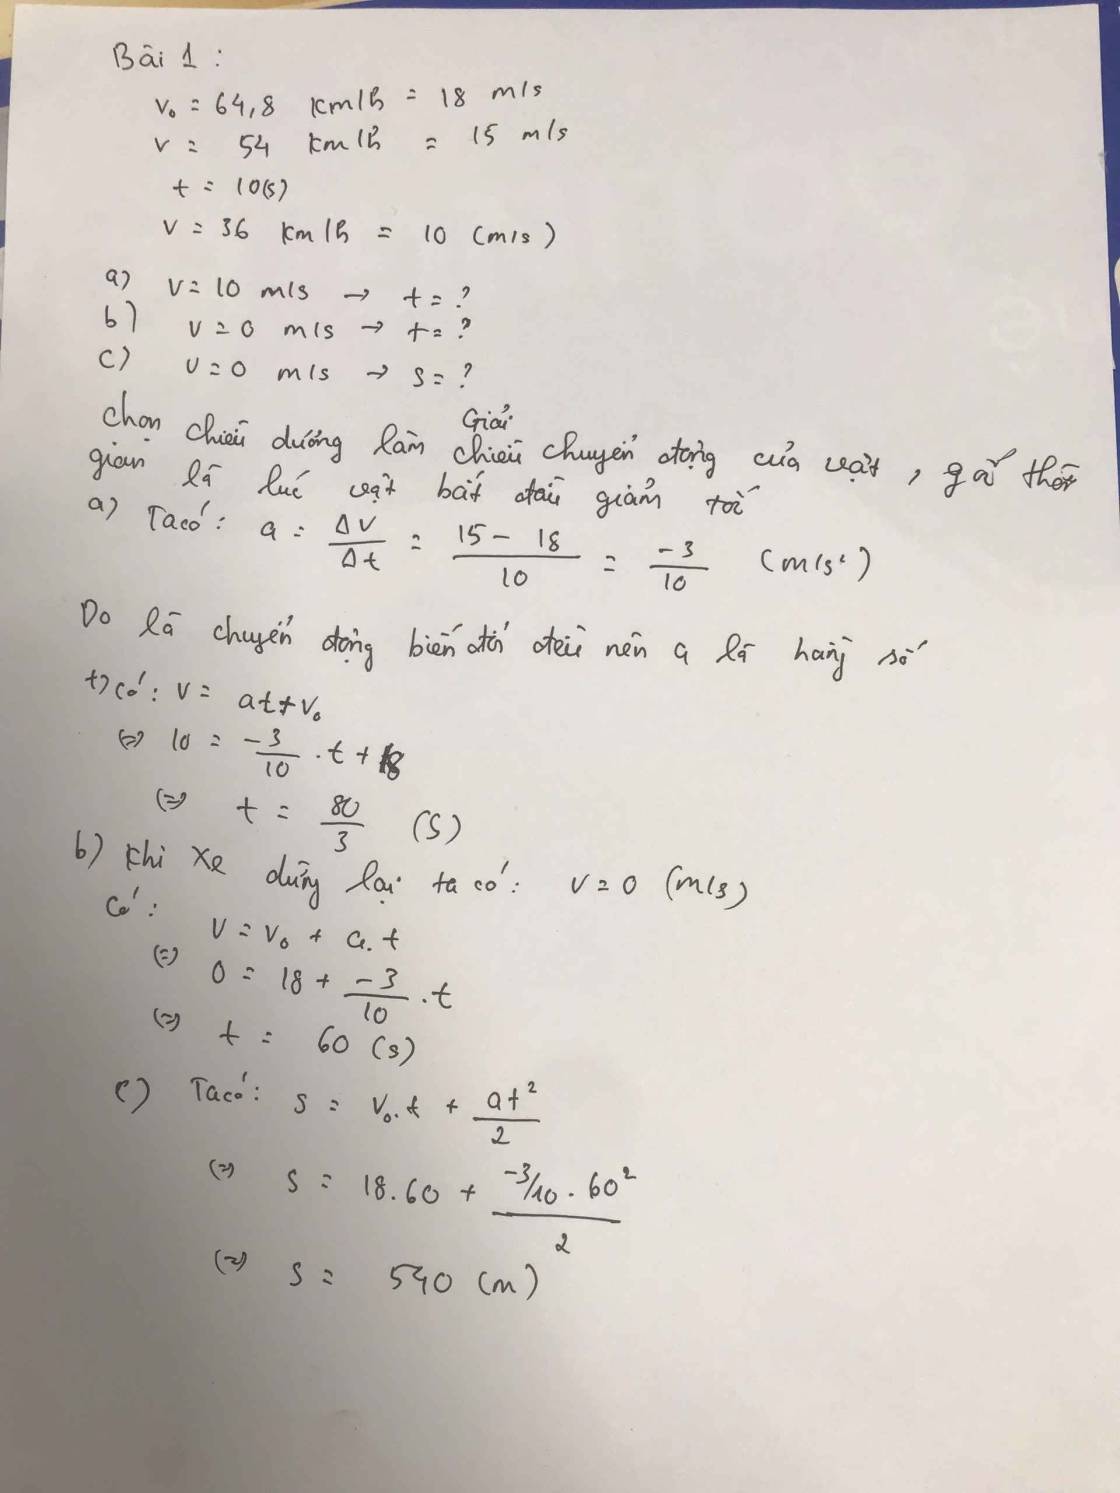 Bài 1 :
v₀ = 64,8 km/h = 18 m/s
v = 54 km/h = 15 m/s
t = 10(s)
v = 36 km/h = 10 (m/s)
a) v = 10 m/s → t = ?
b) v = 0 m/s → t = ?
c) v = 0 m/s → s = ?
Giải
Chọn chiều dương làm chiều chuyển động của vật, gốc thời
gian là lúc vật bắt đầu giảm tốc
a) Ta có: a = Δv/Δt = (15 - 18)/10 = -3/10 (m/s²)
Do là chuyển động biến đổi đều nên a là hằng số
có: v = at + v₀
(=) 10 = -3/10 . t + 18
(=) t = 80/3 (s)
b) Khi xe dừng lại ta có: v = 0 (m/s)
Có:
v = v₀ + a. t
(=) 0 = 18 + -3/10 . t
(=) t = 60 (s)
c) Ta có: s = v₀.t + at²/2
(=) s = 18.60 + (-3/10 . 60²)/2
(=) s = 540 (m)